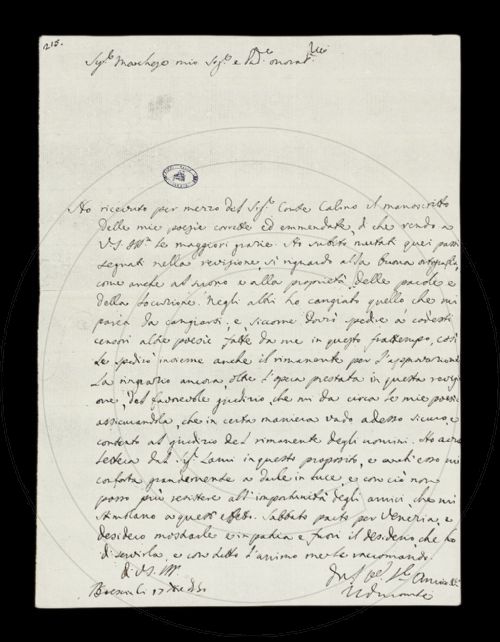 215.
Sig.r Marchese mio Sig.r e Pad.e onorat.mo
Ho ricevuto per mezzo del Sig.r Conte Calino il manoscritto
delle mie poesie corrette ed emmendate, di che rendo a
V.S. Ill.ma le maggiori grazie. Ho subito mutati quei passi
segnati nella revisione, si riguardo alla buona ortografia,
come anche al suono e alla proprietà delle parole e
della locuzione. Negli altri ho cangiato quello che mi
parea da cangiarsi, e siccome dovrò spedire a codesti
censori altre poesie fatte da me in questo frattempo, così
le spedirò insieme anche il rimanente per l'approvazione.
La ringrazio ancora, oltre l'opera prestata in questa revisi
one, del favorevole giudizio che mi da circa le mie poesie
assicurandola, che in certa maniera vado adesso sicuro, e
contento al giudizio del rimanente degli uomini. Ho avuto
lettera dal Sig.r Lami in questo proposito, e anch'esso mi
conforta grandemente a darle in luce, e con ciò non
posso più resistere all'importunità degli amici, che mi
stimolano a questi effetti. Sabbato parto per Venezia, e
desidero mostrarle e in patria e fuori il desiderio che ho
di servirla, e con tutto l'animo me le raccomando.
di V.S. Ill.ma
Brescia li 17